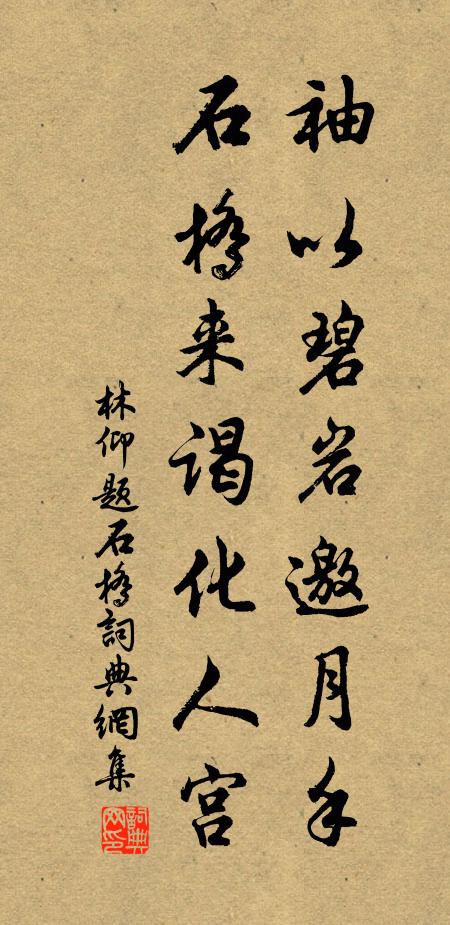 袖以碧岩邀月手
石橋来谒化人宫
林仰题石橋詞典網集
詞典网印